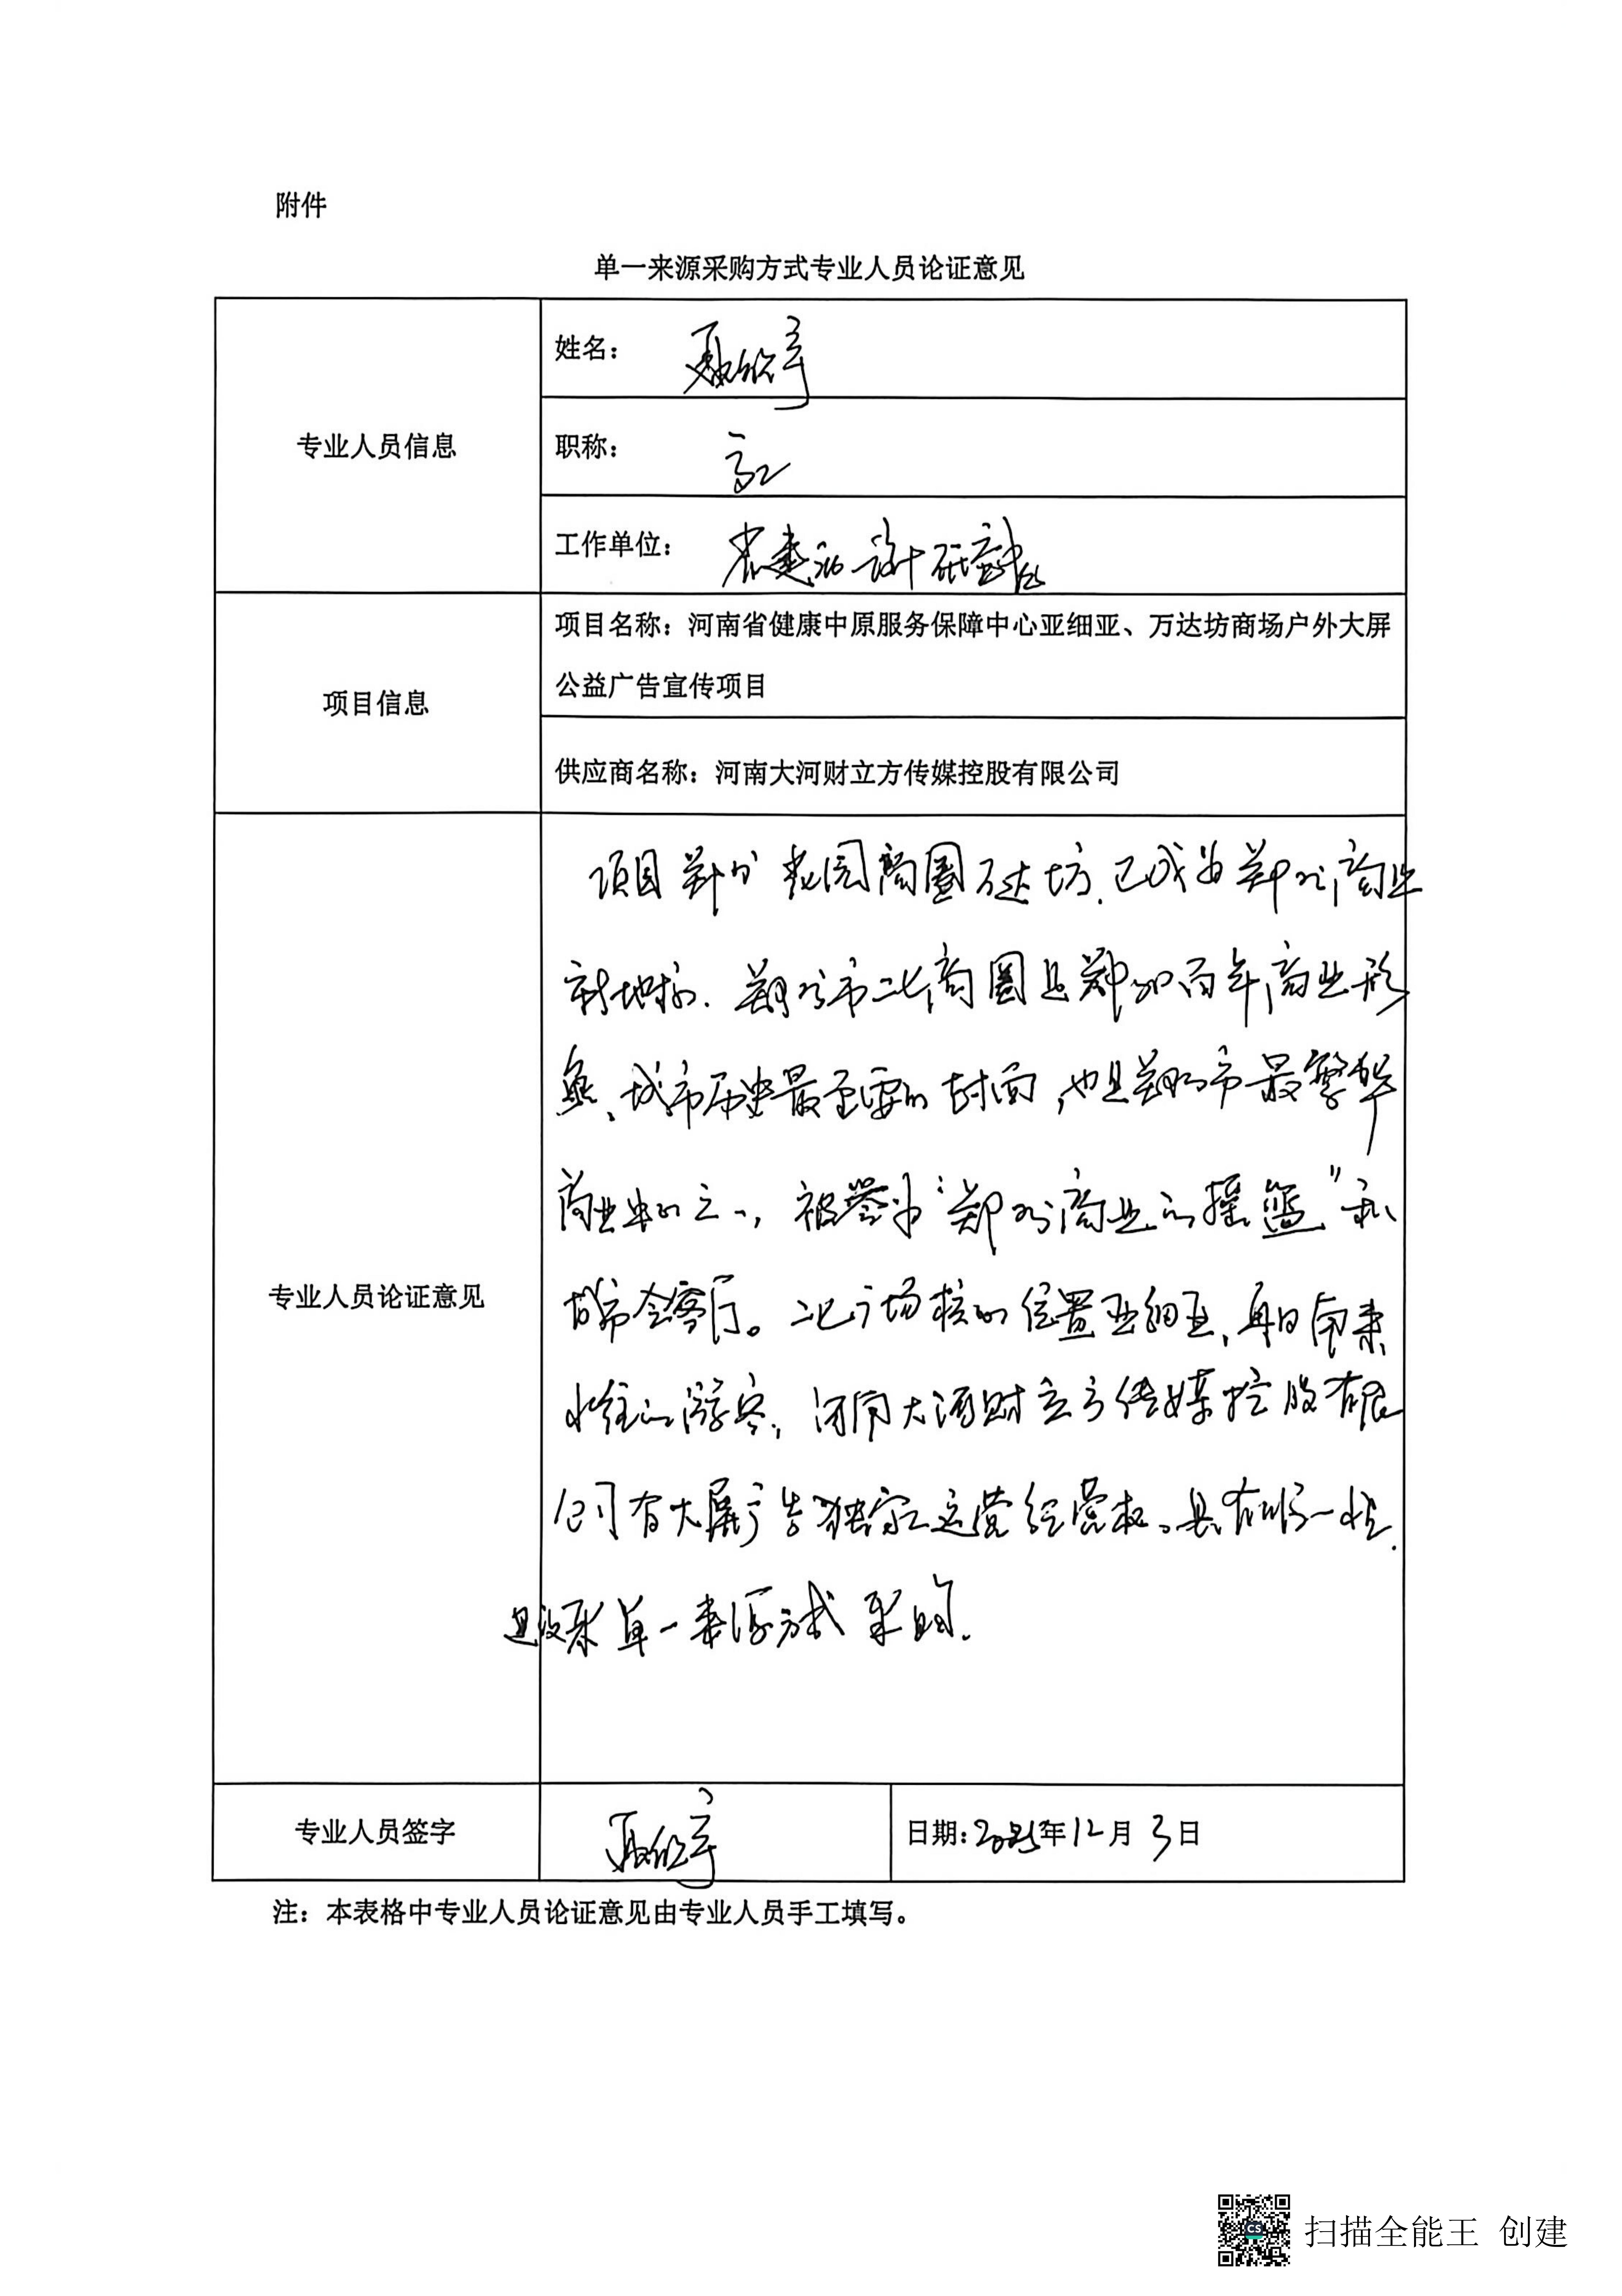 附件
单一来源采购方式专业人员论证意见
专业人员信息
姓名：
职称： 高工
工作单位： 省建 设计研究
项目信息
项目名称：河南省健康中原服务保障中心亚细亚、万达坊商场户外大屏
公益广告宣传项目
供应商名称：河南大河财立方传媒控股有限公司
专业人员论证意见
项目郑州花园商圈万达坊.已成为郑州商业
新地标.郑州市二七商圈是郑州百年商业形
象、城市历史最重要的封面，也是郑州市最繁华
商业 之一，被誉为“郑州商业的摇篮”和
城市会客厅。二七广场核心位置亚细亚，每日南来
北往的游客，河南大河财立方传媒控股有限
公司有大屏广告独家运营经营权。具有唯一性.
建议采单一来源方式采购.
专业人员签字
日期：2025年12月3日
注：本表格中专业人员论证意见由专业人员手工填写。
扫描全能王 创建